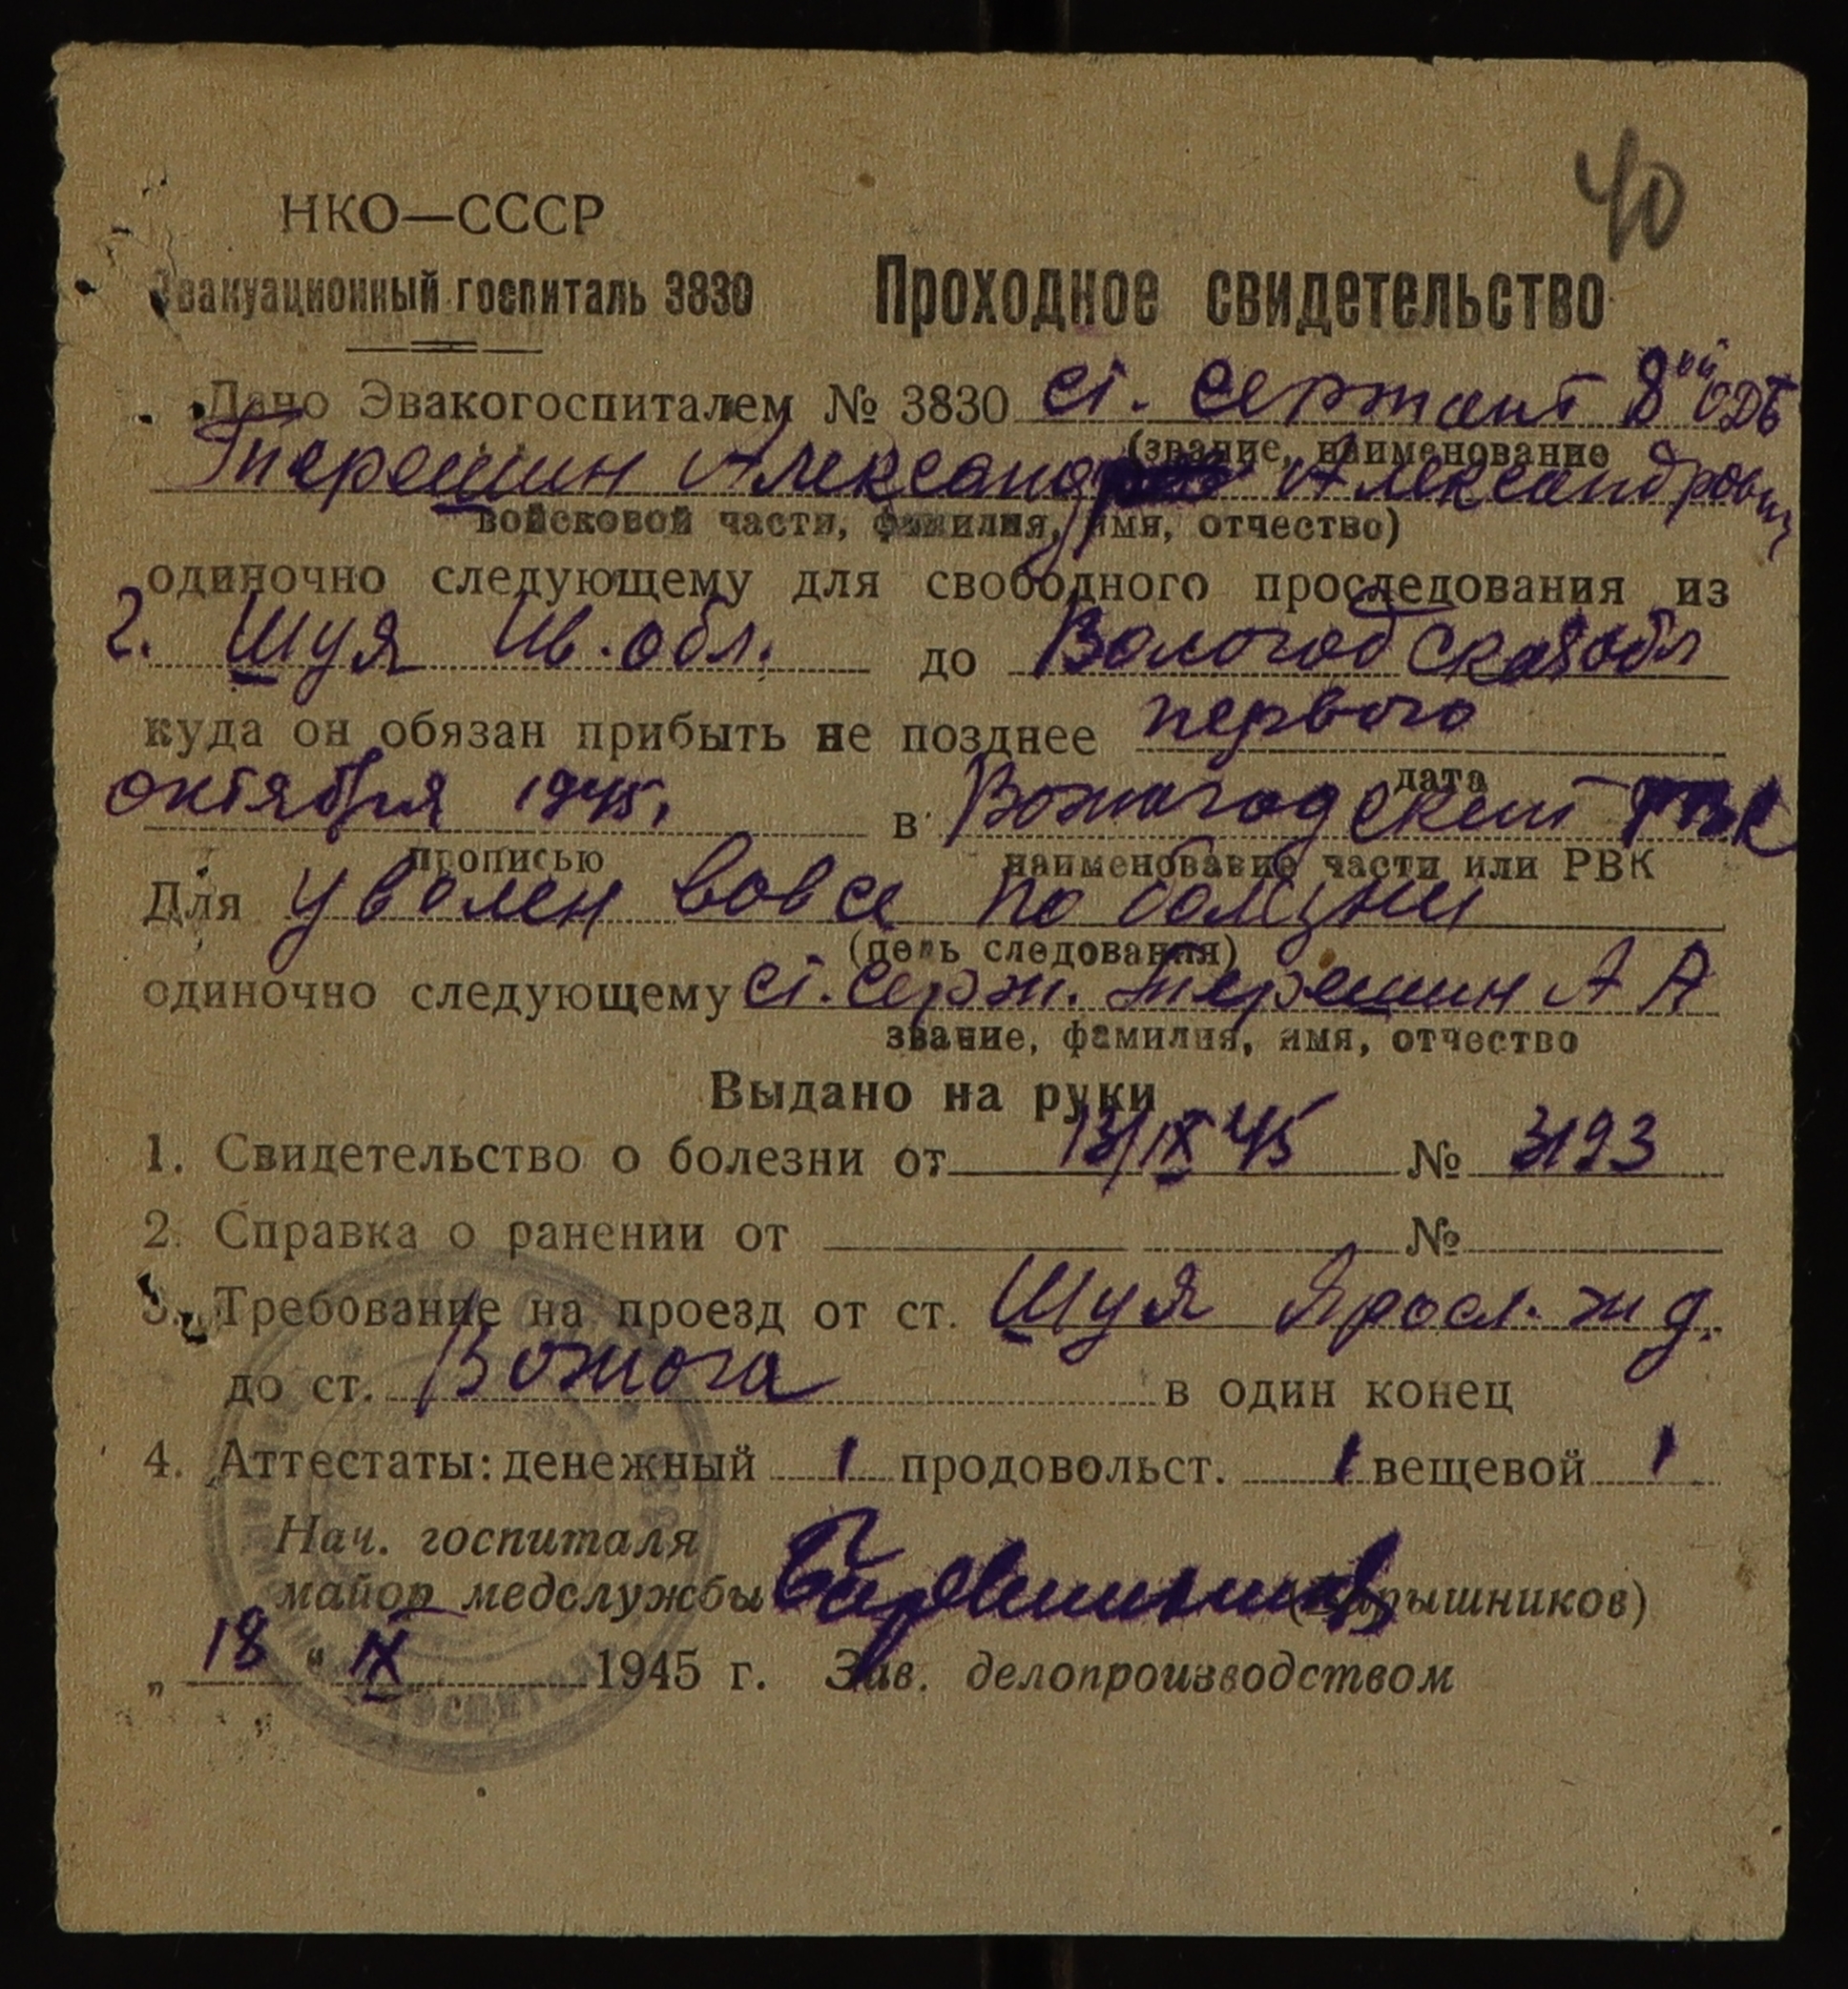 40
НКО—СССР
Эвакуационный госпиталь 3830
Проходное свидетельство
Дано Эвакогоспиталем № 3830 ст. сержант 8ой ОДБ
(звание, наименование
Терешин Александр Александрович
войсковой части, фамилия, имя, отчество)
одиночно следующему для свободного проследования из
г. Шуя Ив. обл. до Вологодская обл
куда он обязан прибыть не позднее первого
дата
октября 1945. в Вожегодский РВК
прописью наименование части или РВК
Для уволен вовсе по болезни
(цель следования)
одиночно следующему ст. серж. Терешин А А
звание, фамилия, имя, отчество
Выдано на руки
1. Свидетельство о болезни от 13/IX 45 № 3193
2. Справка о ранении от № 
3. Требование на проезд от ст. Шуя Яросл. ж д.
до ст. Вожога в один конец
4. Аттестаты: денежный 1 продовольст. 1 вещевой 1
Нач. госпиталя
майор медслужбы (Барышников)
„ 18 “ IX 1945 г. Зав. делопроизводством